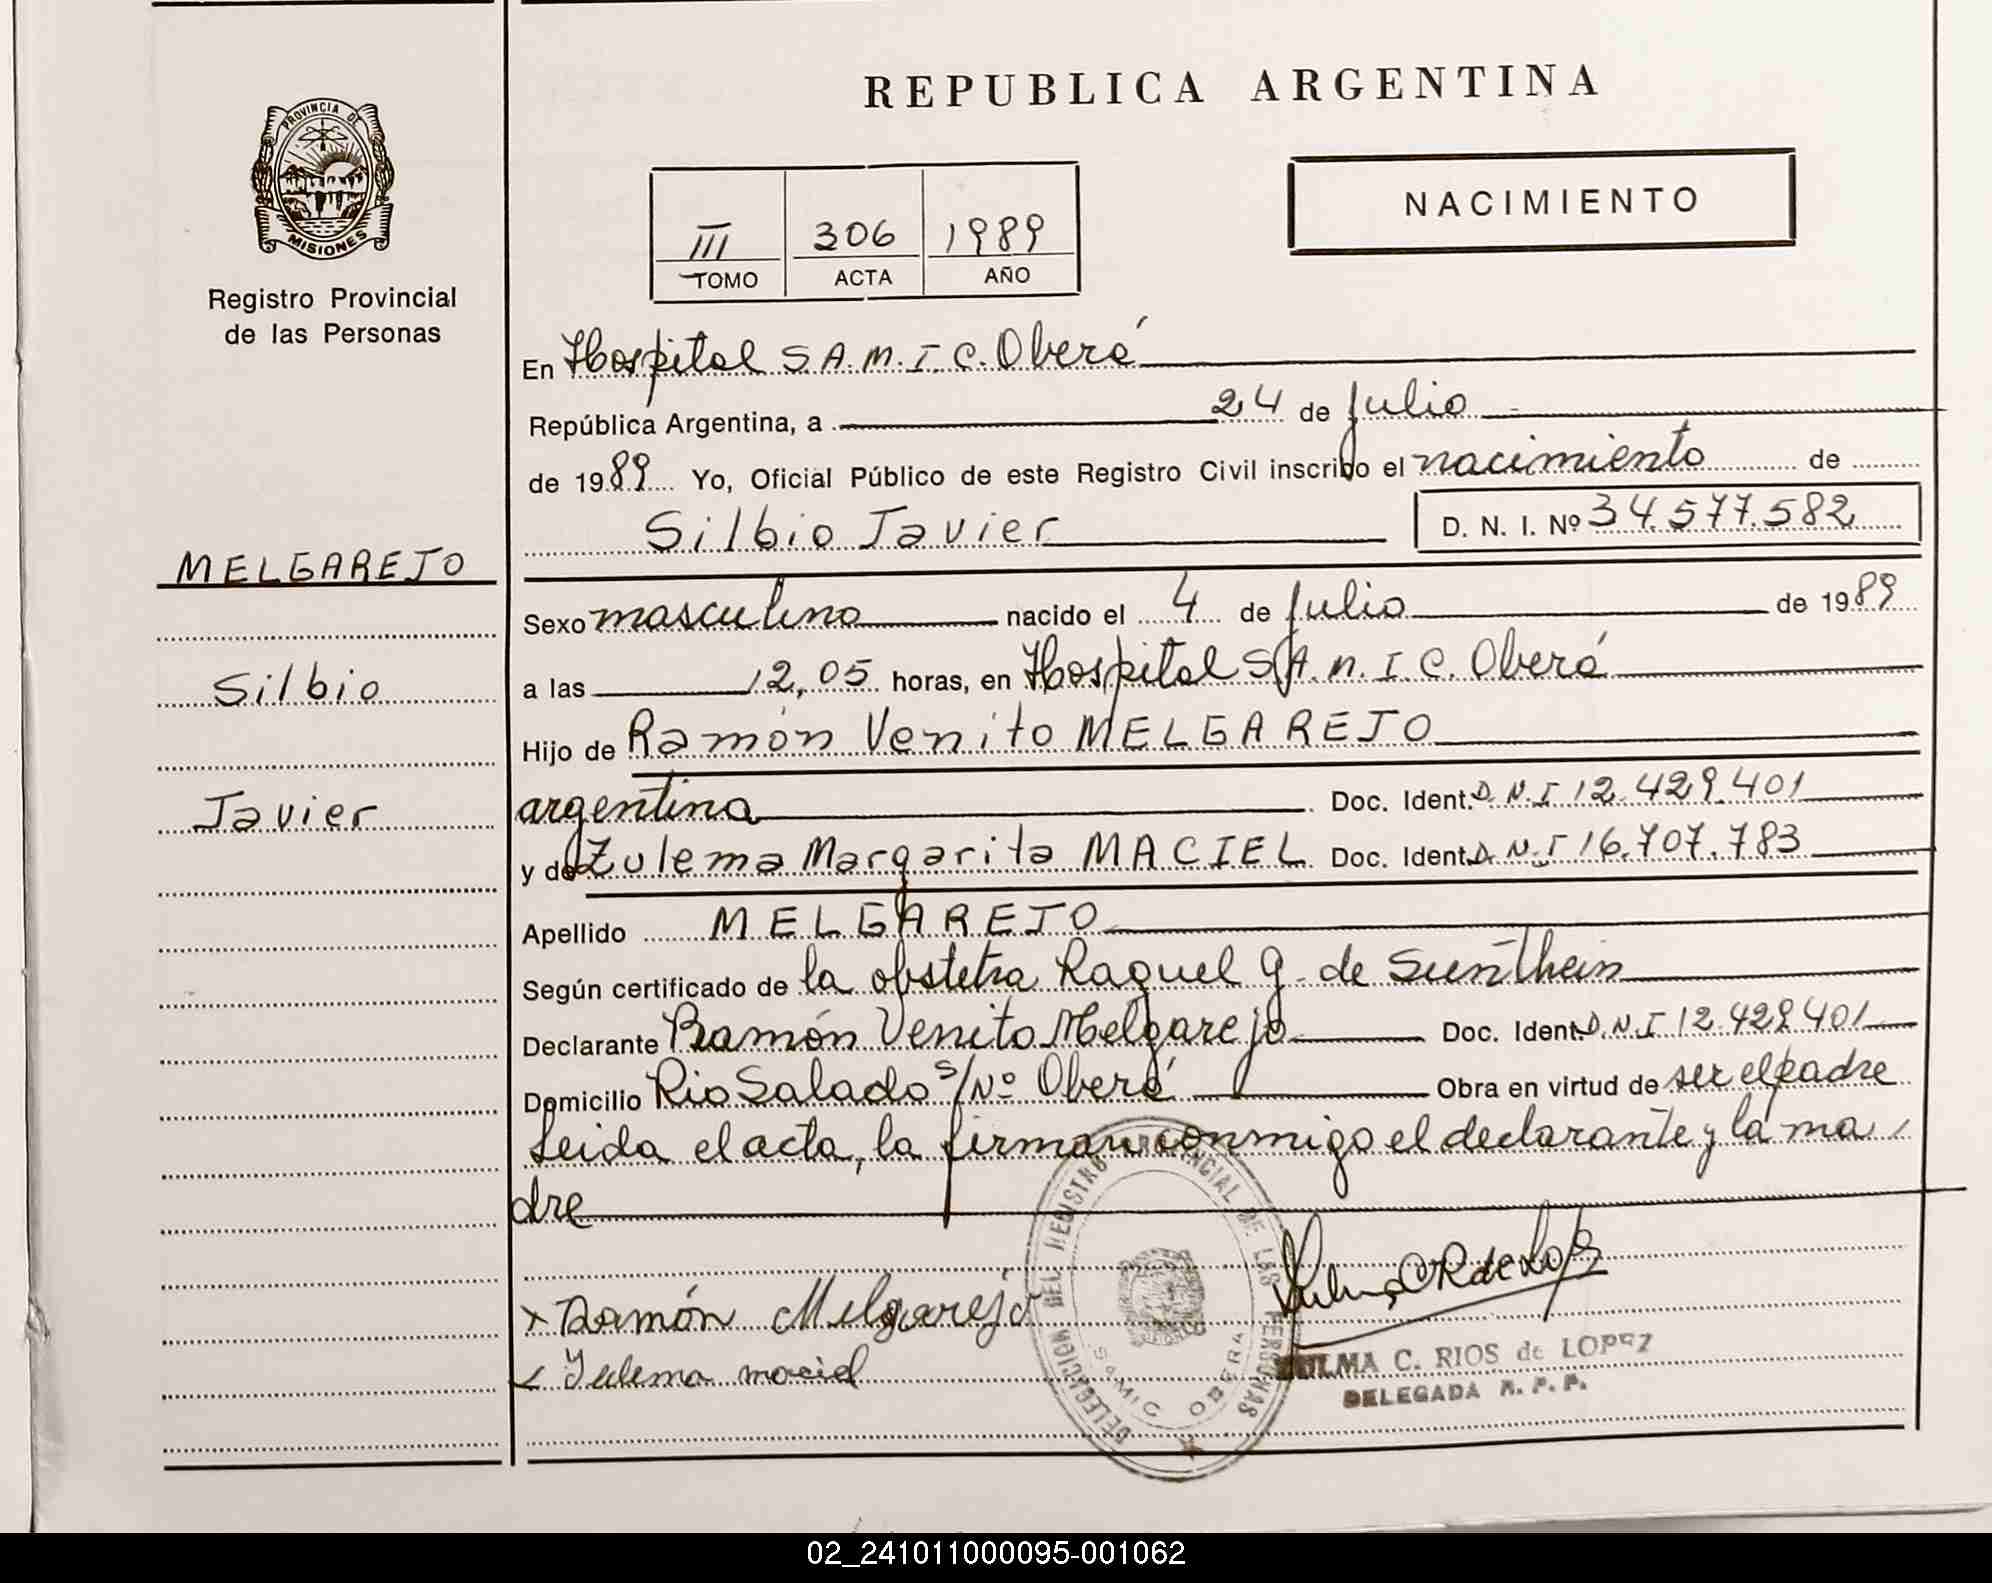 REPUBLICA ARGENTINA
PROVINCIA DE
MISIONES
Registro Provincial
de las Personas
III 306 1989
TOMO ACTA AÑO
NACIMIENTO
MELGAREJO
Silbio
Javier
En Hospital S.A.M.I.C. Oberá
República Argentina, a 24 de Julio
de 1989 Yo, Oficial Público de este Registro Civil inscribo el nacimiento de
Silbio Javier D. N. I. Nº 34.577.582
Sexo masculino nacido el 4 de Julio de 1989
a las 12,05 horas, en Hospital S.A.M.I.C. Oberá
Hijo de Ramón Venito MELGAREJO
argentina Doc. Ident. D.N.I 12.429.401
y de Zulema Margarita MACIEL Doc. Ident. D.N.I 16.707.783
Apellido MELGAREJO
Según certificado de la obstetra Raquel G. de Sunthein
Declarante Ramón Venito Melgarejo Doc. Ident. D.N.I 12.429.401
Domicilio Rio Salado s/Nº Oberá Obra en virtud de ser el padre
Leida el acta, la firman conmigo el declarante y la ma
dre
x Ramón Melgarejo
Zulema maciel
DELEGACION DEL REGISTRO PROVINCIAL DE LAS PERSONAS
SAMIC OBERA
ZULMA C. RIOS de LOPEZ
DELEGADA R. P. P.
02_241011000095-001062